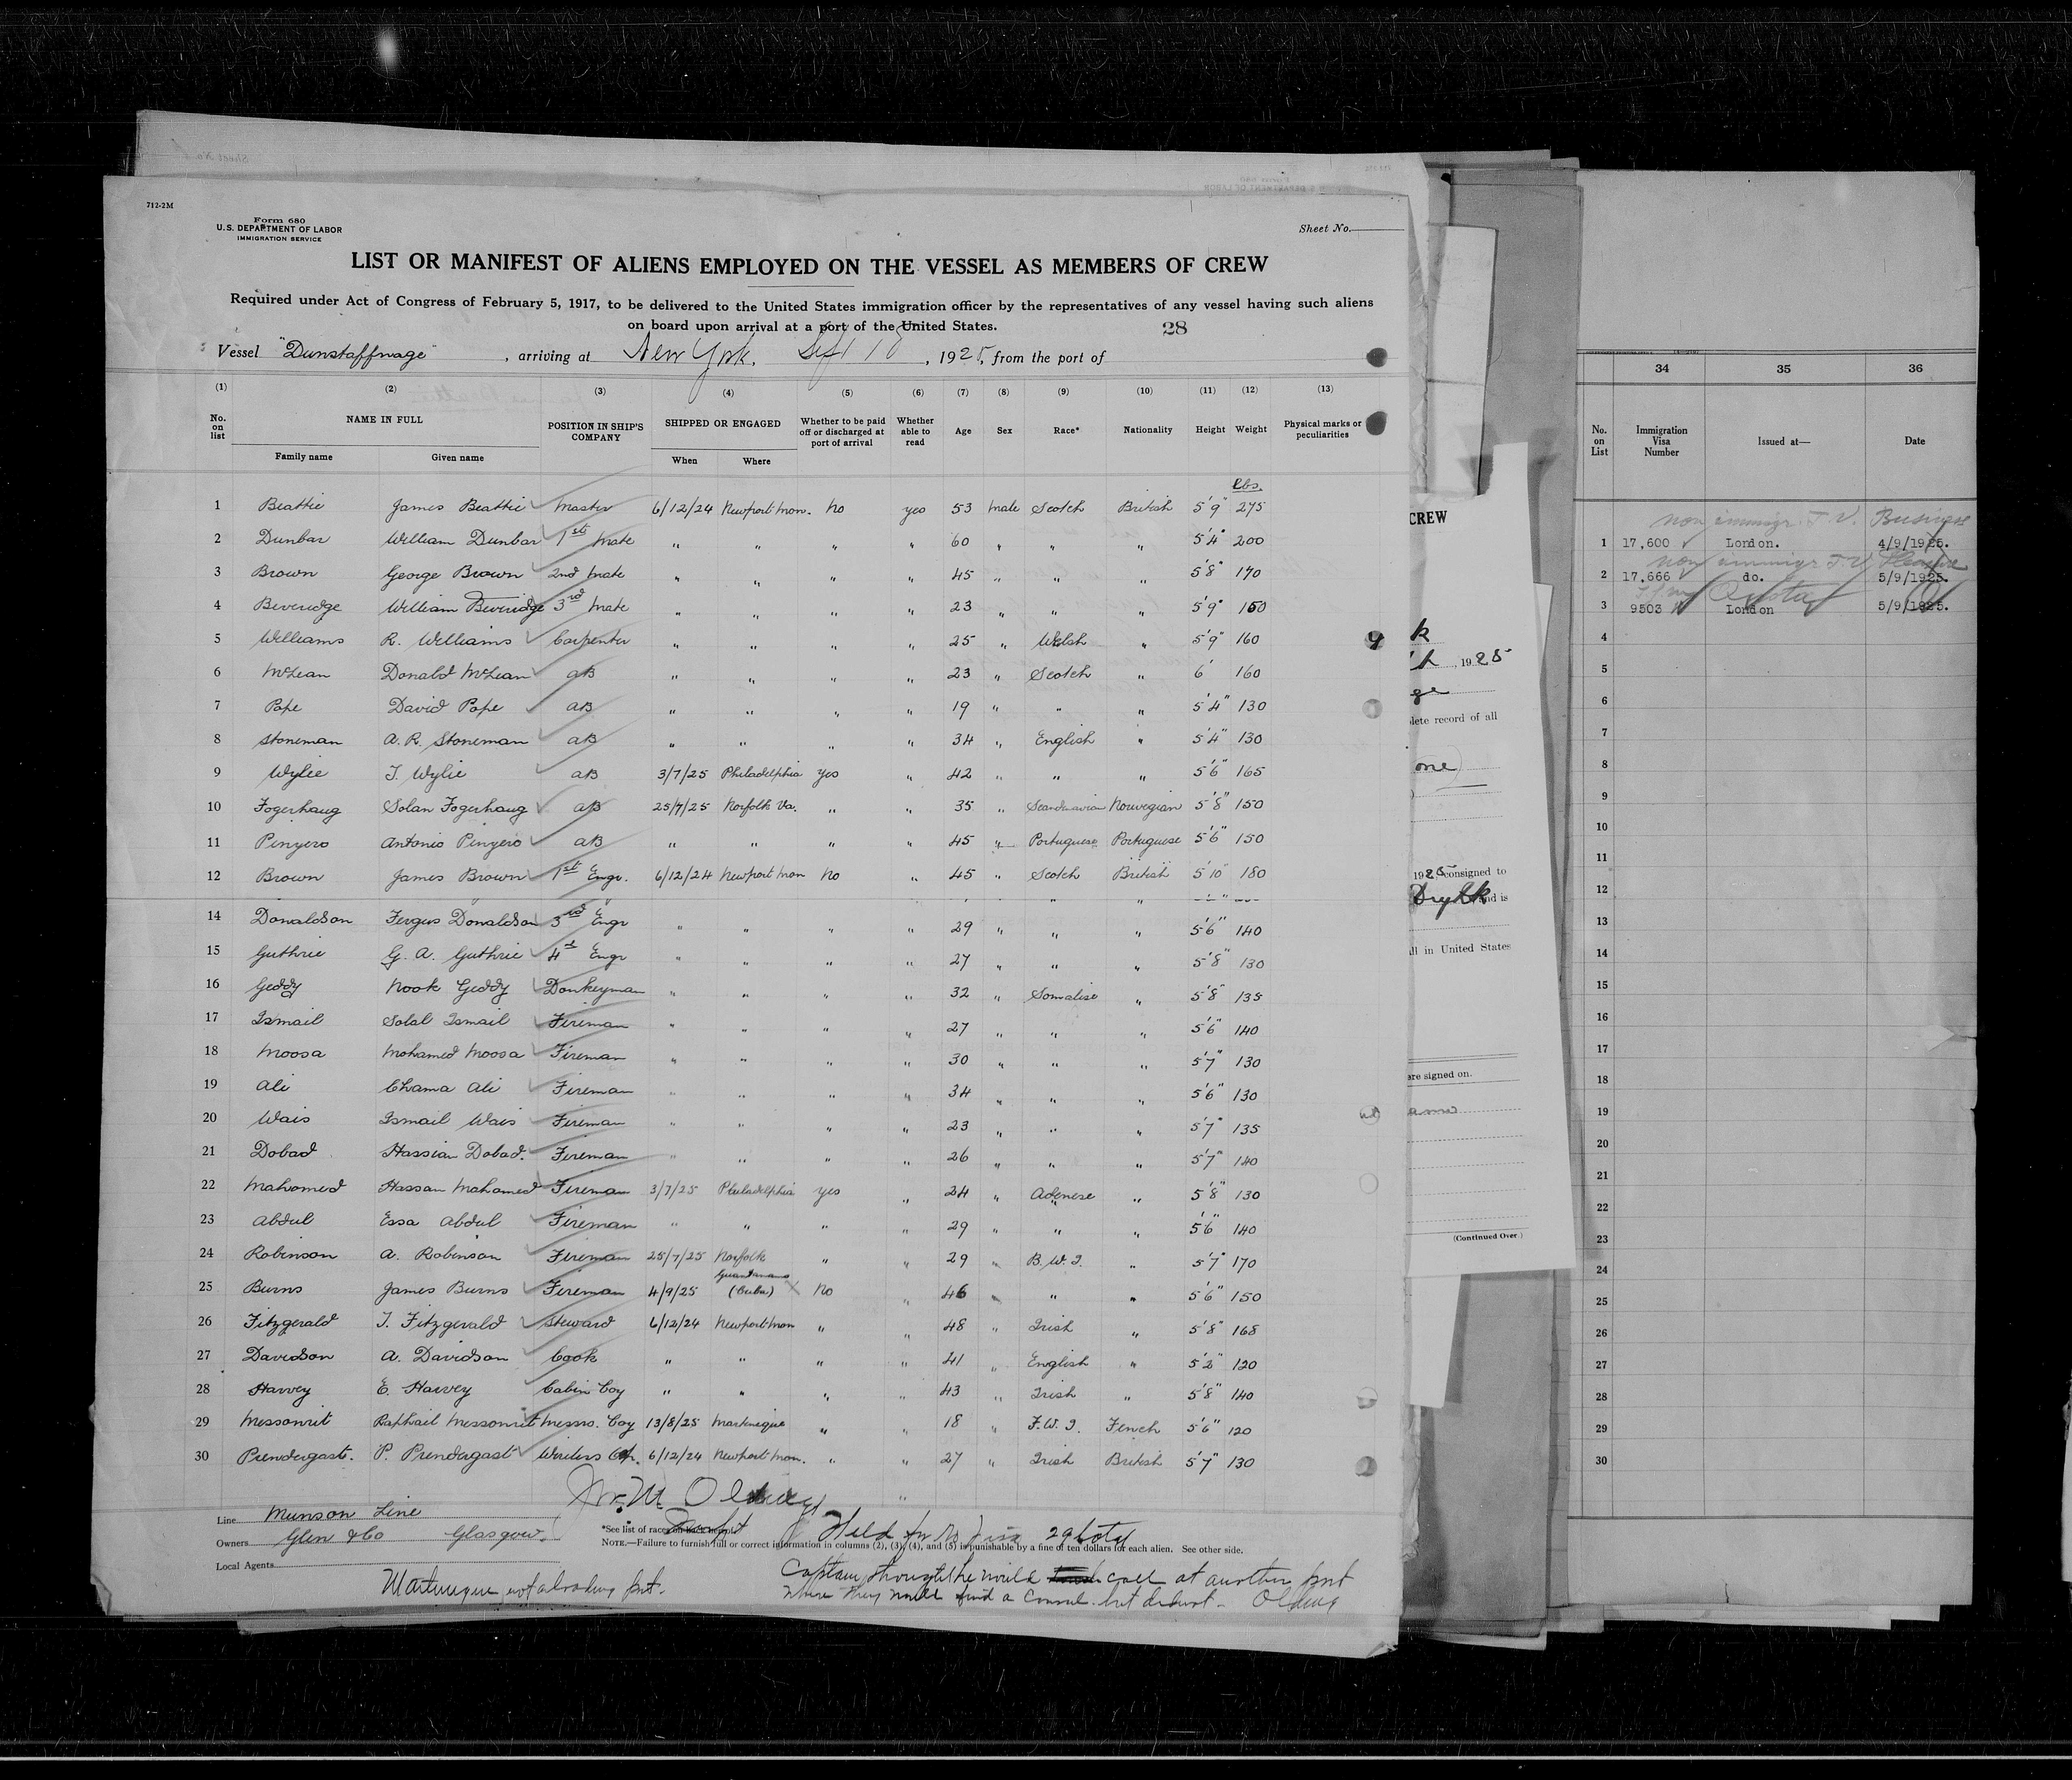 712-2M
Form 680
U.S. DEPARTMENT OF LABOR
IMMIGRATION SERVICE
Sheet No.
LIST OR MANIFEST OF ALIENS EMPLOYED ON THE VESSEL AS MEMBERS OF CREW
Required under Act of Congress of February 5, 1917, to be delivered to the United States immigration officer by the representatives of any vessel having such aliens
on board upon arrival at a port of the United States.
28
Vessel "Dunstaffnage", arriving at New York, Sept 18, 1925, from the port of
(1) (2) (3) (4) (5) (6) (7) (8) (9) (10) (11) (12) (13)
No. on list NAME IN FULL POSITION IN SHIP'S COMPANY SHIPPED OR ENGAGED Whether to be paid off or discharged at port of arrival Whether able to read Age Sex Race* Nationality Height Weight Physical marks or peculiarities
Family name Given name When Where
Lbs.
1 Beattie James Beattie Master 6/12/24 Newport Mon. No yes 53 male Scotch British 5'9" 275
2 Dunbar William Dunbar 1st Mate " " " " 60 " " " 5'4" 200
3 Brown George Brown 2nd Mate " " " " 45 " " " 5'8" 170
4 Beveridge William Beveridge 3rd Mate " " " " 23 " " " 5'9" 150
5 Williams R. Williams Carpenter " " " " 25 " Welsh " 5'9" 160
6 McLean Donald McLean AB " " " " 23 " Scotch " 6' 160
7 Pope David Pope AB " " " " 19 " " " 5'4" 130
8 Stoneman A. R. Stoneman AB " " " " 34 " English " 5'4" 130
9 Wylie T. Wylie AB 3/7/25 Philadelphia yes " 42 " " " 5'6" 165
10 Fogerhaug Solan Fogerhaug AB 25/7/25 Norfolk Va. " " 35 " Scandinavian Norwegian 5'8" 150
11 Pinyero Antonio Pinyero AB " " " " 45 " Portuguese Portuguese 5'6" 150
12 Brown James Brown 1st Engr. 6/12/24 Newport Mon No " 45 " Scotch British 5'10" 180
14 Donaldson Fergus Donaldson 3rd Engr " " " " 29 " " " 5'6" 140
15 Guthrie G. A. Guthrie 4th Engr " " " " 27 " " " 5'8" 130
16 Geddy Nook Geddy Donkeyman " " " " 32 " Somalise " 5'8" 135
17 Ismail Solal Ismail Fireman " " " " 27 " " " 5'6" 140
18 Moosa Mohamed Moosa Fireman " " " " 30 " " " 5'7" 130
19 Ali Chama Ali Fireman " " " " 34 " " " 5'6" 130
20 Wais Ismail Wais Fireman " " " " 23 " " " 5'7" 135
21 Dobad Hassian Dobad. Fireman " " " " 26 " " " 5'7" 140
22 Mahomed Hassan Mahomed Fireman 3/7/25 Philadelphia yes " 24 " Adenese " 5'8" 130
23 Abdul Essa Abdul Fireman " " " " 29 " " " 5'6" 140
24 Robinson A. Robinson Fireman 25/7/25 Norfolk " " 29 " B.W.I. " 5'7" 170
25 Burns James Burns Fireman 4/9/25 Guantanamo (Cuba) No " 46 " " " 5'6" 150
26 Fitzgerald T. Fitzgerald Steward 6/12/24 Newport Mon " " 48 " Irish " 5'8" 168
27 Davidson A. Davidson Cook " " " " 41 " English " 5'2" 120
28 Harvey E. Harvey Cabin Boy " " " " 43 " Irish " 5'8" 140
29 Messonrit Raphail Messonrit Messrs. Boy 13/8/25 Martinique " " 18 " F.W.I. Fench 5'6" 120
30 Prendergast. P. Prendergast Wireless Opr. 6/12/24 Newport Mon. " " 27 " Irish British 5'7" 130
Line Munson Line
Owners Glen & Co Glasgow.
Local Agents
*See list of races
NOTE.—Failure to furnish full or correct information in columns (2), (3), (4), and (5) is punishable by a fine of ten dollars for each alien. See other side.
Held for no visa 29
Captain thought he would call at another port
where they would find a Consul but did not — Oldway
Martinique not a port.
CREW
k
, 1925
ge
plete record of all
one
1925 consigned to
and is
all in United States
ere signed on.
ame
(Continued Over.)
34 35 36
No. on List Immigration Visa Number Issued at— Date
non immigr. T.V. Business
1 17,600 London. 4/9/1925.
non immigr T.V.
2 17,666 do. 5/9/1925.
Quota
3 9503 London 5/9/1925.
4
5
6
7
8
9
10
11
12
13
14
15
16
17
18
19
20
21
22
23
24
25
26
27
28
29
30